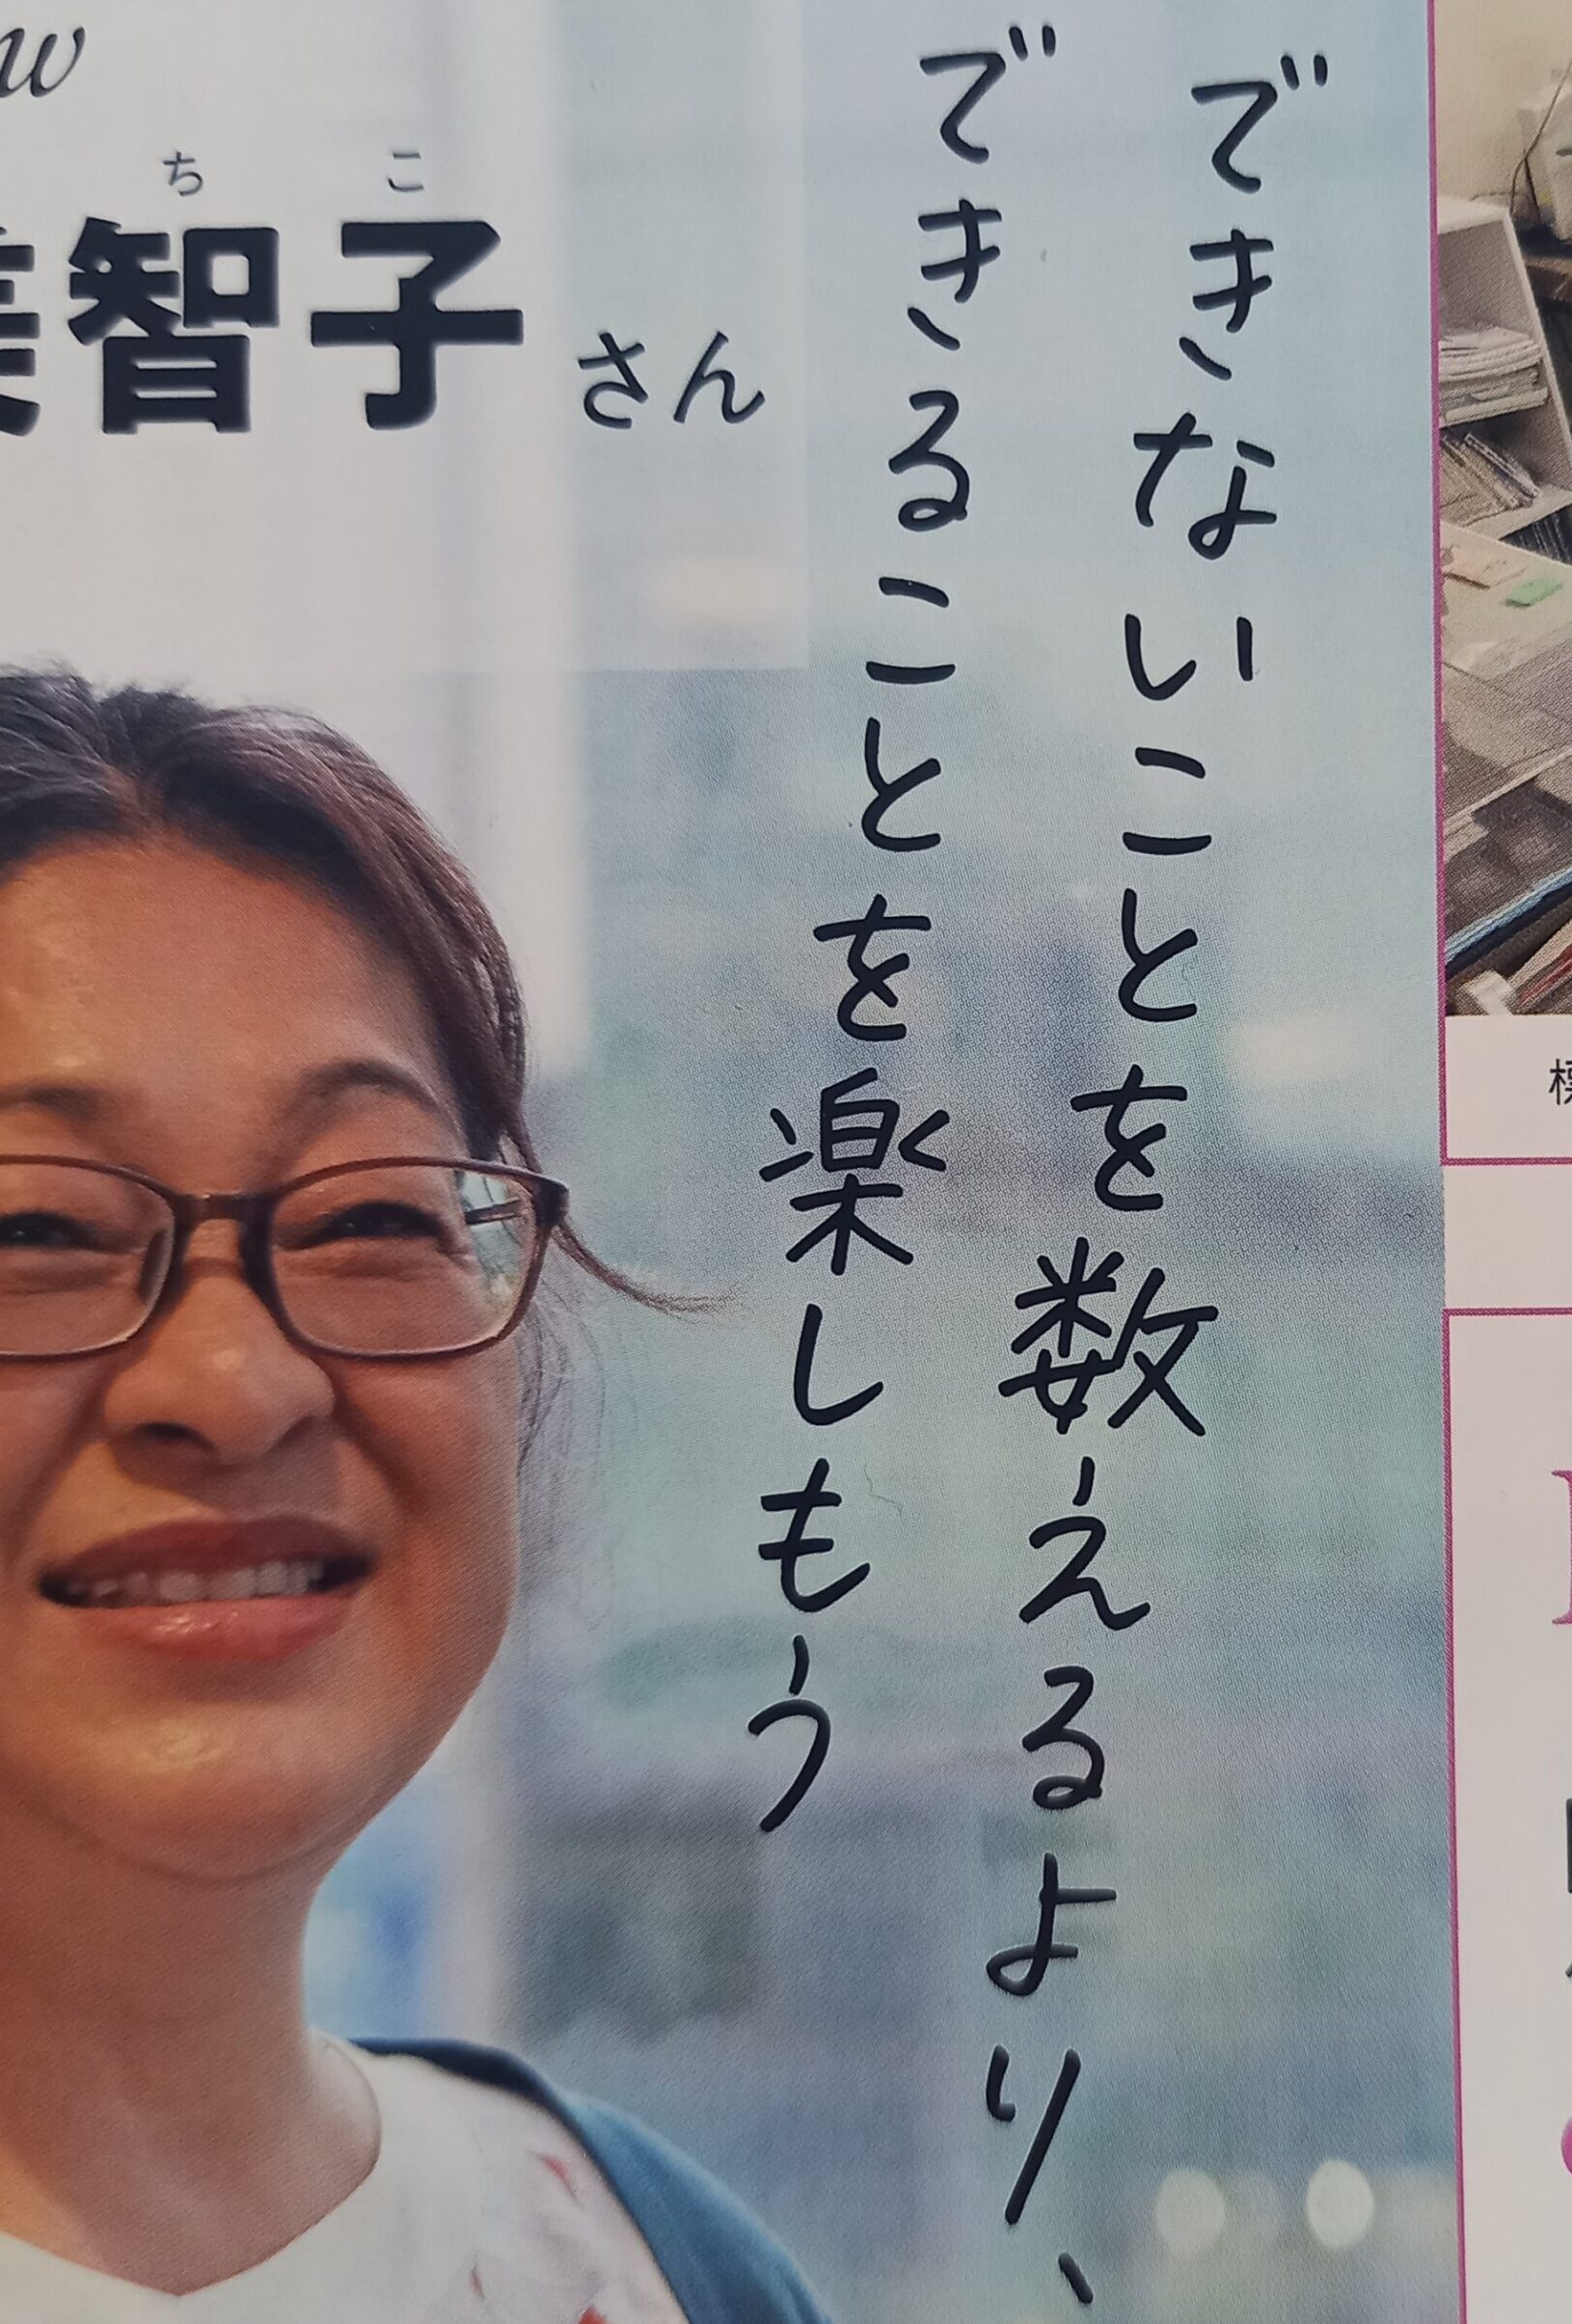 ち こ
智子さん
できないことを数えるより、
できることを楽しもう